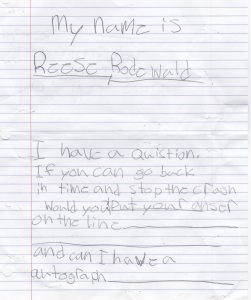 My Name is
Reese Rodewald
I have a Quistion.
If you can go back
in time and stop the crash
Would you put your anser
on the line.
and can I have a
autograph